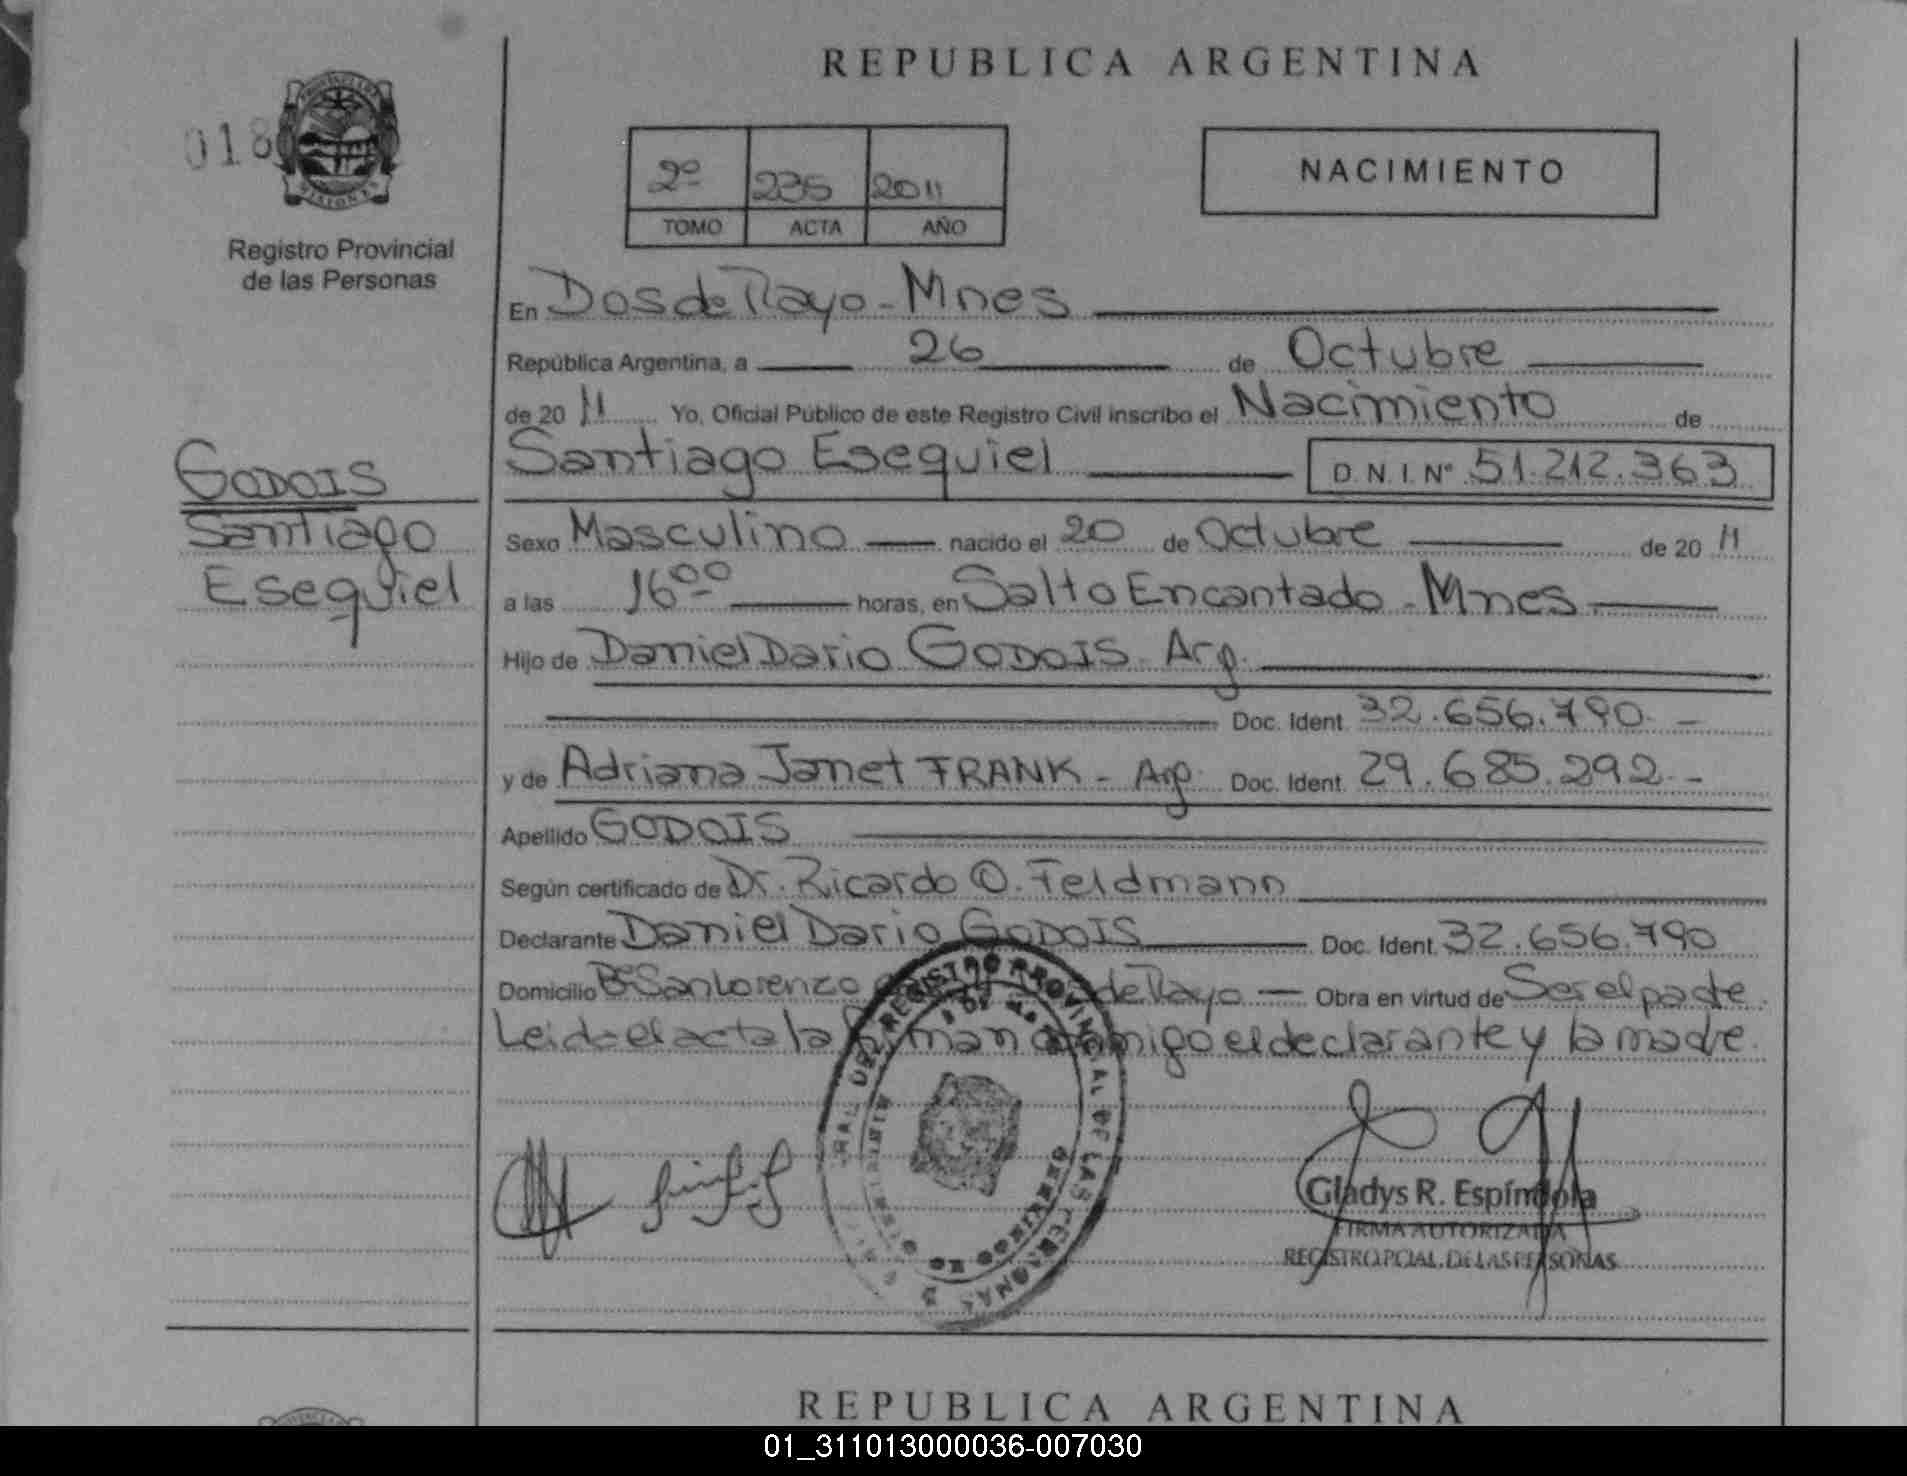 REPUBLICA ARGENTINA
018
2º 235 2011
TOMO ACTA AÑO
NACIMIENTO
Registro Provincial
de las Personas
GODOIS
Santiago
Esequiel
En Dos de Mayo - Mnes
República Argentina, a 26 de Octubre
de 20 11 Yo, Oficial Público de este Registro Civil inscribo el Nacimiento de
Santiago Esequiel D.N.I. Nº 51.212.363
Sexo Masculino nacido el 20 de Octubre de 20 11
a las 16ºº horas, en Salto Encantado - Mnes
Hijo de Daniel Dario GODOIS - Arg.
Doc. Ident. 32.656.790 -
y de Adriana Janet FRANK - Arg. Doc. Ident. 29.685.292 -
Apellido GODOIS
Según certificado de Dr. Ricardo O. Feldmann
Declarante Daniel Dario GODOIS Doc. Ident. 32.656.790
Domicilio Bº San Lorenzo de Mayo - Obra en virtud de Ser el padre
Leida el acta la firman conmigo el declarante y la madre
REGISTRO PROVINCIAL DE LAS PERSONAS
Gladys R. Espíndola
FIRMA AUTORIZADA
REGISTRO PCIAL. DE LAS PERSONAS
REPUBLICA ARGENTINA
01_311013000036-007030